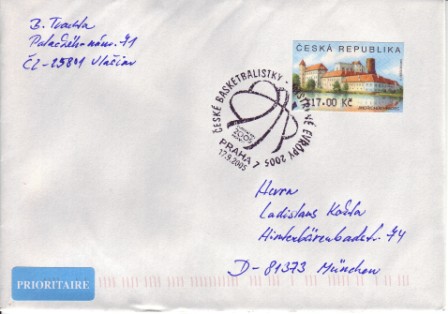 B. Trachta
Palackého nám. 71
CZ-25801 Vlašim
ČESKÁ REPUBLIKA
17.00 Kč
ČESKÉ BASKETBALISTKY - MISTRYNĚ EVROPY 2005
PRAHA 7
17.9.2005
Herrn
Ladislaus
Hinterbärenbadstr. 74
D-81373 München
PRIORITAIRE